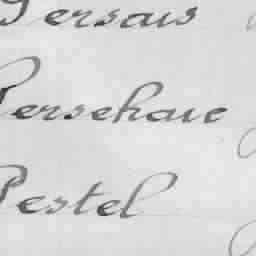 Persais
Persehaie
Pestel